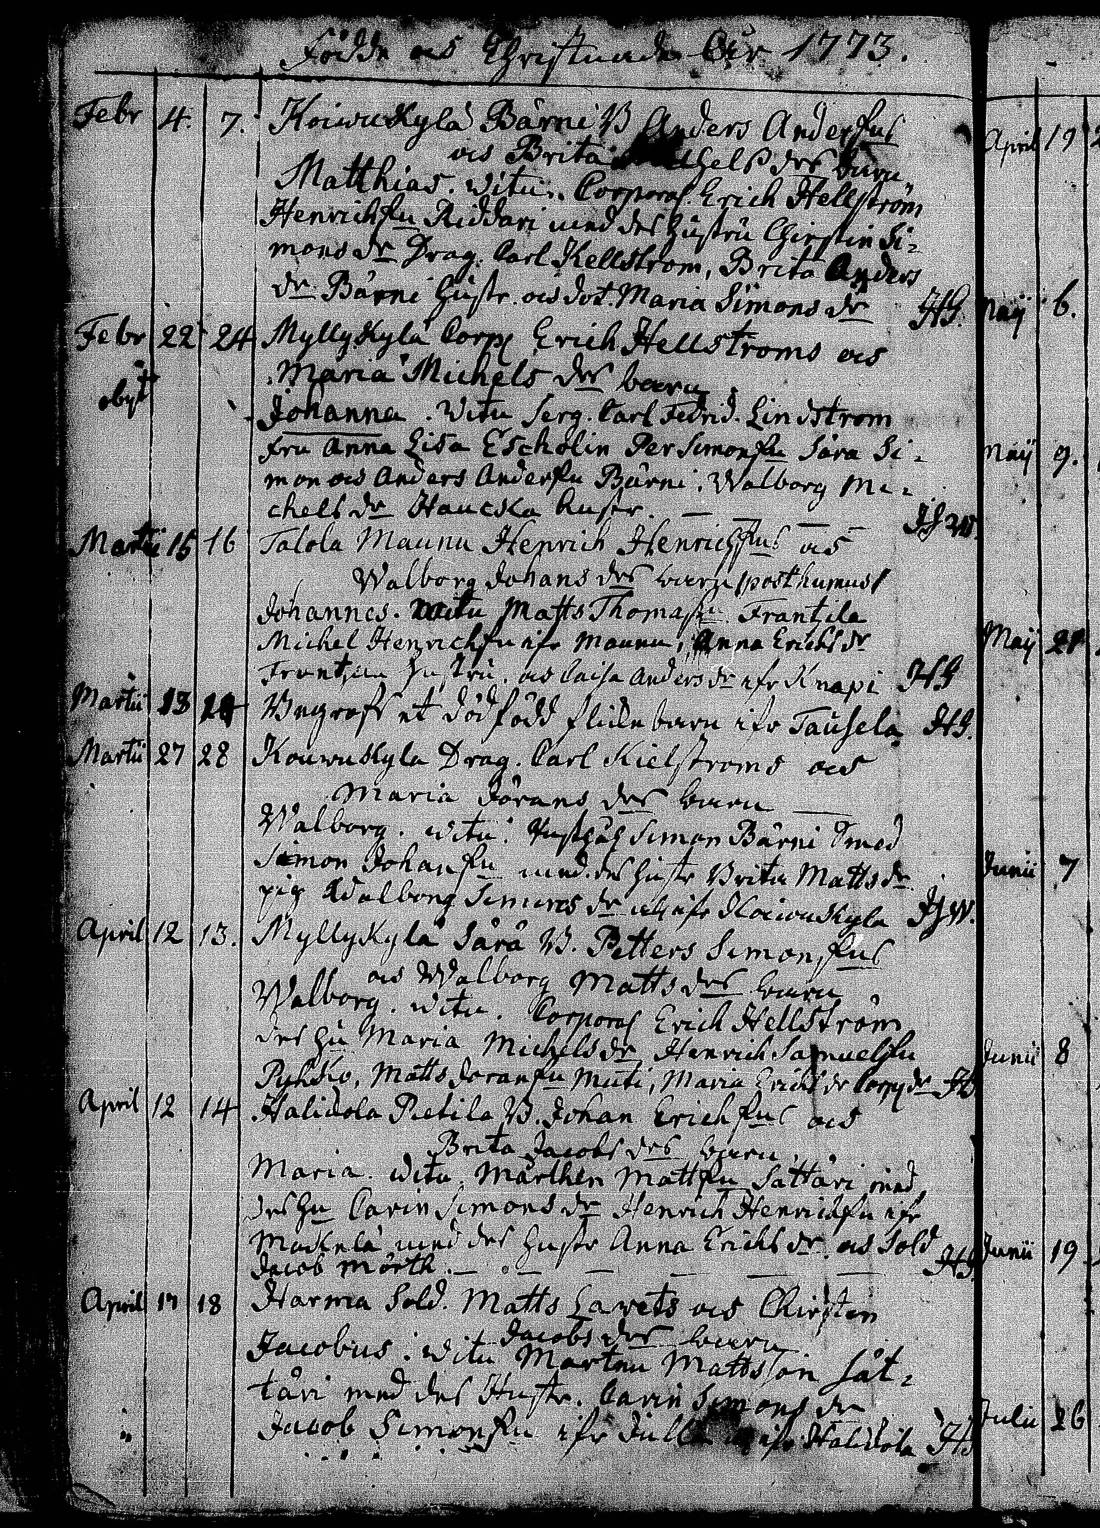 Födde och Christnade Åhr 1773.
Febr 4. 7. Koiwukylä Bärni B Anders Andersons
och Brita dr barn
Matthias. witn. Corporal Erich Hellström
Henrichsn Riddari med des hustru Chirstin Si-
mons dr Drag. Carl Kellstrom, Brita Anders
dr Bärni hustr. och dot. Maria Simons dr HG.
Febr 22 24 Myllykylä Corp Erich Hellstroms och
Maria Michels drs barn
obiit
Johanna. witn Serg. Carl Fedrid. Lindstrom
fru Anna Lisa Escholin Per Simonsn Sara Si-
mon och Anders Andersn Bärni. Walborg Mi-
chels dr Haucka hustr.
Martii 15 16 Talola Maunu Henrich Henrichsons och
Walborg Johans drs barn posthumus
Johannes. witn Matts Thomasn Frantzila
Michel Henrichsn ifr Maunu, Anna Erichs dr
hustru. och Caisa Anders dr ifr Knapi HG
Martii 13 Begrofs et dödfödd flicke barn ifr Tausela HG.
Martii 27 28 Kouwukyla Drag. Carl Kielstroms och
Maria Jörans drs barn
Walborg. witn. Simon Bärni Smed
Simon Johansn med des hustr Brita Matts dr
pig Walborg Simons dr ifr Koiwukyla
April 12 13. Myllykylä Sårå B. Petters Simonsons
och Walborg Matts drs barn
Walborg. witn. Corporal Erich Hellström
des hu Maria Michels dr Henrich Samuelsn
Pyhko, Matts Joransn Muti, Maria Erichs dr
April 12 14 Halidola Pietila B. Johan Erichsons och
Brita Jacobs drs barn
Maria. witn Mårthen Mattsn Sattäri med
des hu Carin Simons dr Henrich Henrichsn ifr
med des hustr Anna Erichs dr och Sold
Jacob Mörth. HG
April 17 18 Harma Sold. Matts Lavets och Chirsten
Jacobs drs barn
Jacobus. witn Mårten Mattsson Såt-
täri med des Hustr. Carin Simons dr
Jacob Simonsn ifr Halidola HG
April 19
Maij 6.
Maij 9.
Maij
Junii 7
Junii 8
Junii 19
Julii 26